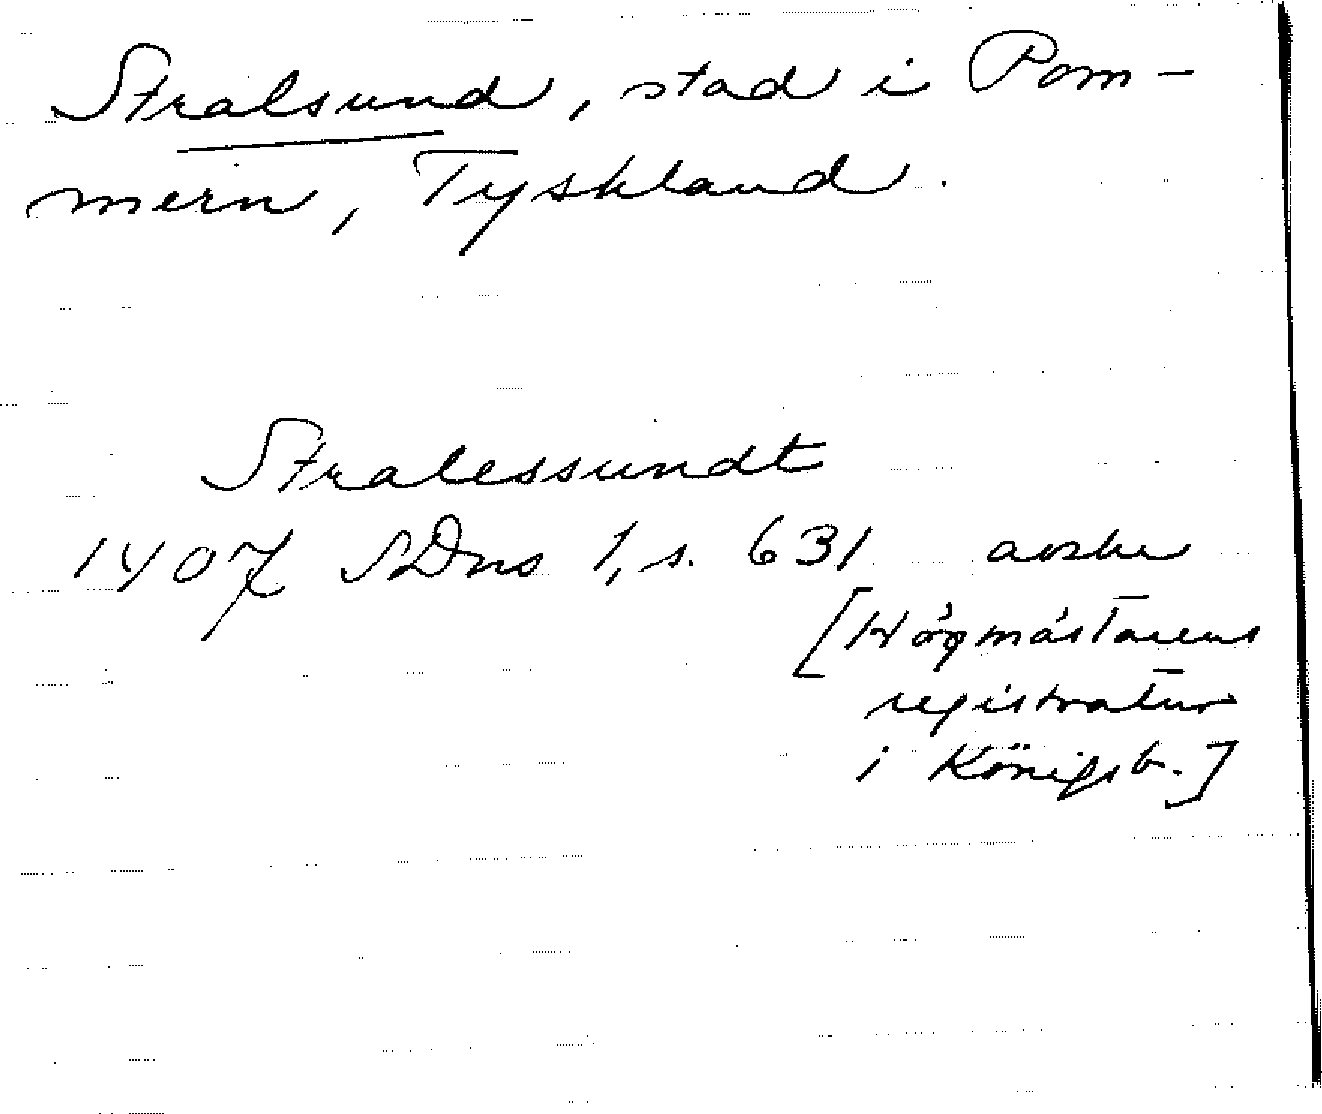 Stralsund, stad i Pom-
mern, Tyskland.
Stralessundt
1407 SDns 1, s. 631 avskr
[Högmästarens
registratur
i Königsb.]